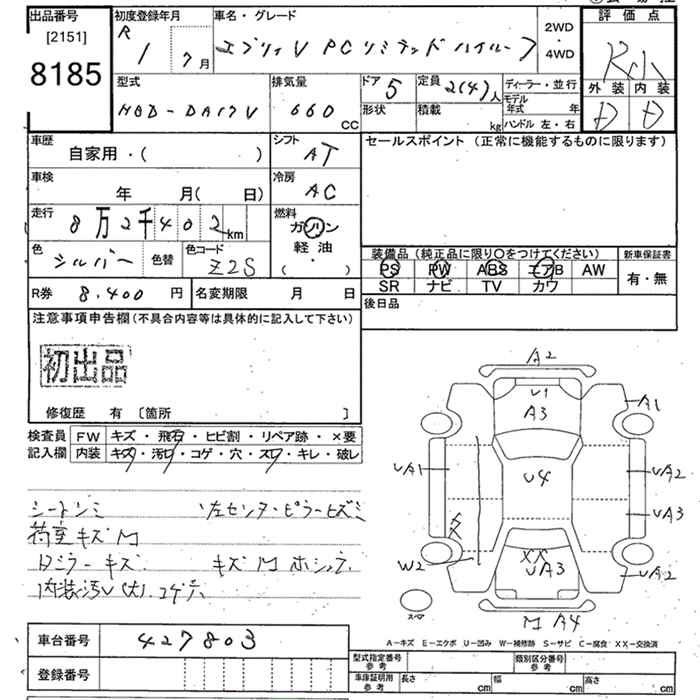 出品番号 初度登録年月 車名・グレード 2WD・4WD 評価点
[2151] R 1 7月 エブリィV PCリミテッド ハイルーフ
8185 外装 内装
D D
型式 排気量 ドア 5 定員 2(4)人 ディーラー・並行
HBD-DA17V 660 CC 形状 積載 kg モデル年式 年
ハンドル 左・右
車歴 自家用・( ) シフト AT セールスポイント (正常に機能するものに限ります)
車検 年 月( 日) 冷房 AC
走行 8万2千402km 燃料 ガソリン 軽油 ( )
色 シルバー 色替 色コード Z2S 装備品 (純正品に限り○をつけてください) 新車保証書
PS PW ABS エアB AW 有・無
R券 8,400円 名変期限 月 日 SR ナビ TV カワ
注意事項申告欄(不具合内容等は具体的に記入して下さい) 後日品
初出品
修復歴 有 [箇所 ]
検査員記入欄 FW キズ・飛石・ヒビ割・リペア跡・×要
内装 キズ・汚レ・コゲ・穴・スレ・キレ・破レ
シートシミ 左センターピラーヒズミ
荷室キズM
Dミラーキズ キズM
内装汚レ(大) コゲ穴
A2
U1
A3
A1
UA1
U4
UA2
UA3
W2
XX
UA3
UA2
スペア
M A4
A-キズ E-エクボ U-凹み W-補修跡 S-サビ C-腐食 XX-交換済
車台番号 427803
登録番号
型式指定番号 参考 類別区分番号 参考
車庫証明用 参考 長さ cm 幅 cm 高さ cm